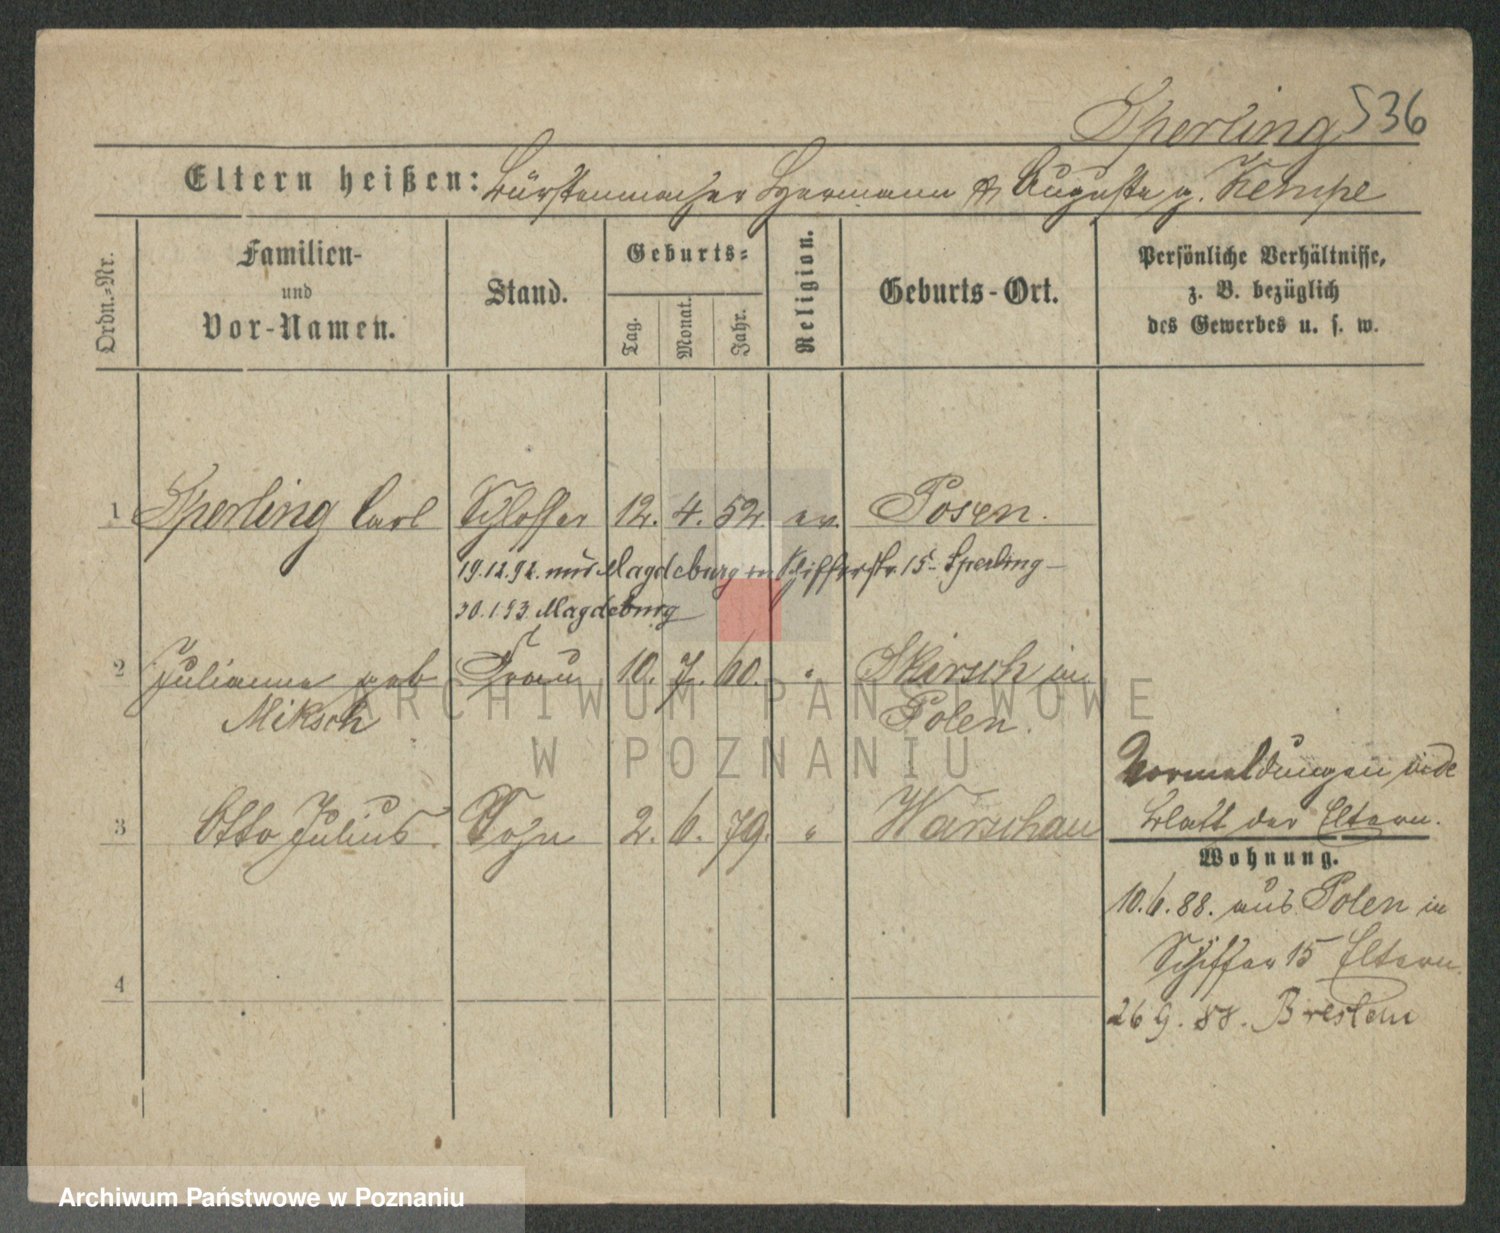 Sperling 536
Eltern heißen: Bürstenmacher Hermann & Auguste g. Kempe
Ordn.-Nr.
Familien-
und
Vor-Namen.
Stand.
Geburts-
Tag.
Monat.
Jahr.
Religion.
Geburts-Ort.
Persönliche Verhältnisse,
z. B. bezüglich
des Gewerbes u. s. w.
1 Sperling Carl Schlosser 12. 4. 52. ev. Posen.
19.12.92. aus Magdeburg in Schifferstr. 15 Sperling
30.1.93 Magdeburg
2 Julianna geb Frau 10. 7. 60. " Skirsch in
Miksch Polen.
3 Otto Julius. Sohn 2. 6. 79. " Warschau
Vormeldungen
Blatt der Eltern.
Wohnung.
10.6.88. aus Polen in
Schiffer 15 Eltern.
4
26 9. 88. Breslau
ARCHIWUM PAŃSTWOWE
W POZNANIU
Archiwum Państwowe w Poznaniu